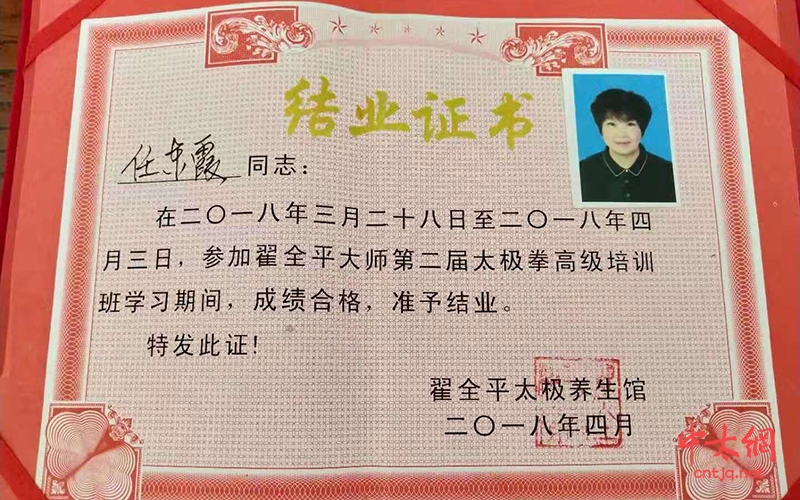 结业证书
任东霞 同志：
在二〇一八年三月二十八日至二〇一八年四
月三日，参加翟全平大师第二届太极拳高级培训
班学习期间，成绩合格，准予结业。
特发此证！
翟全平太极养生馆
二〇一八年四月
中太網
cntjq.net